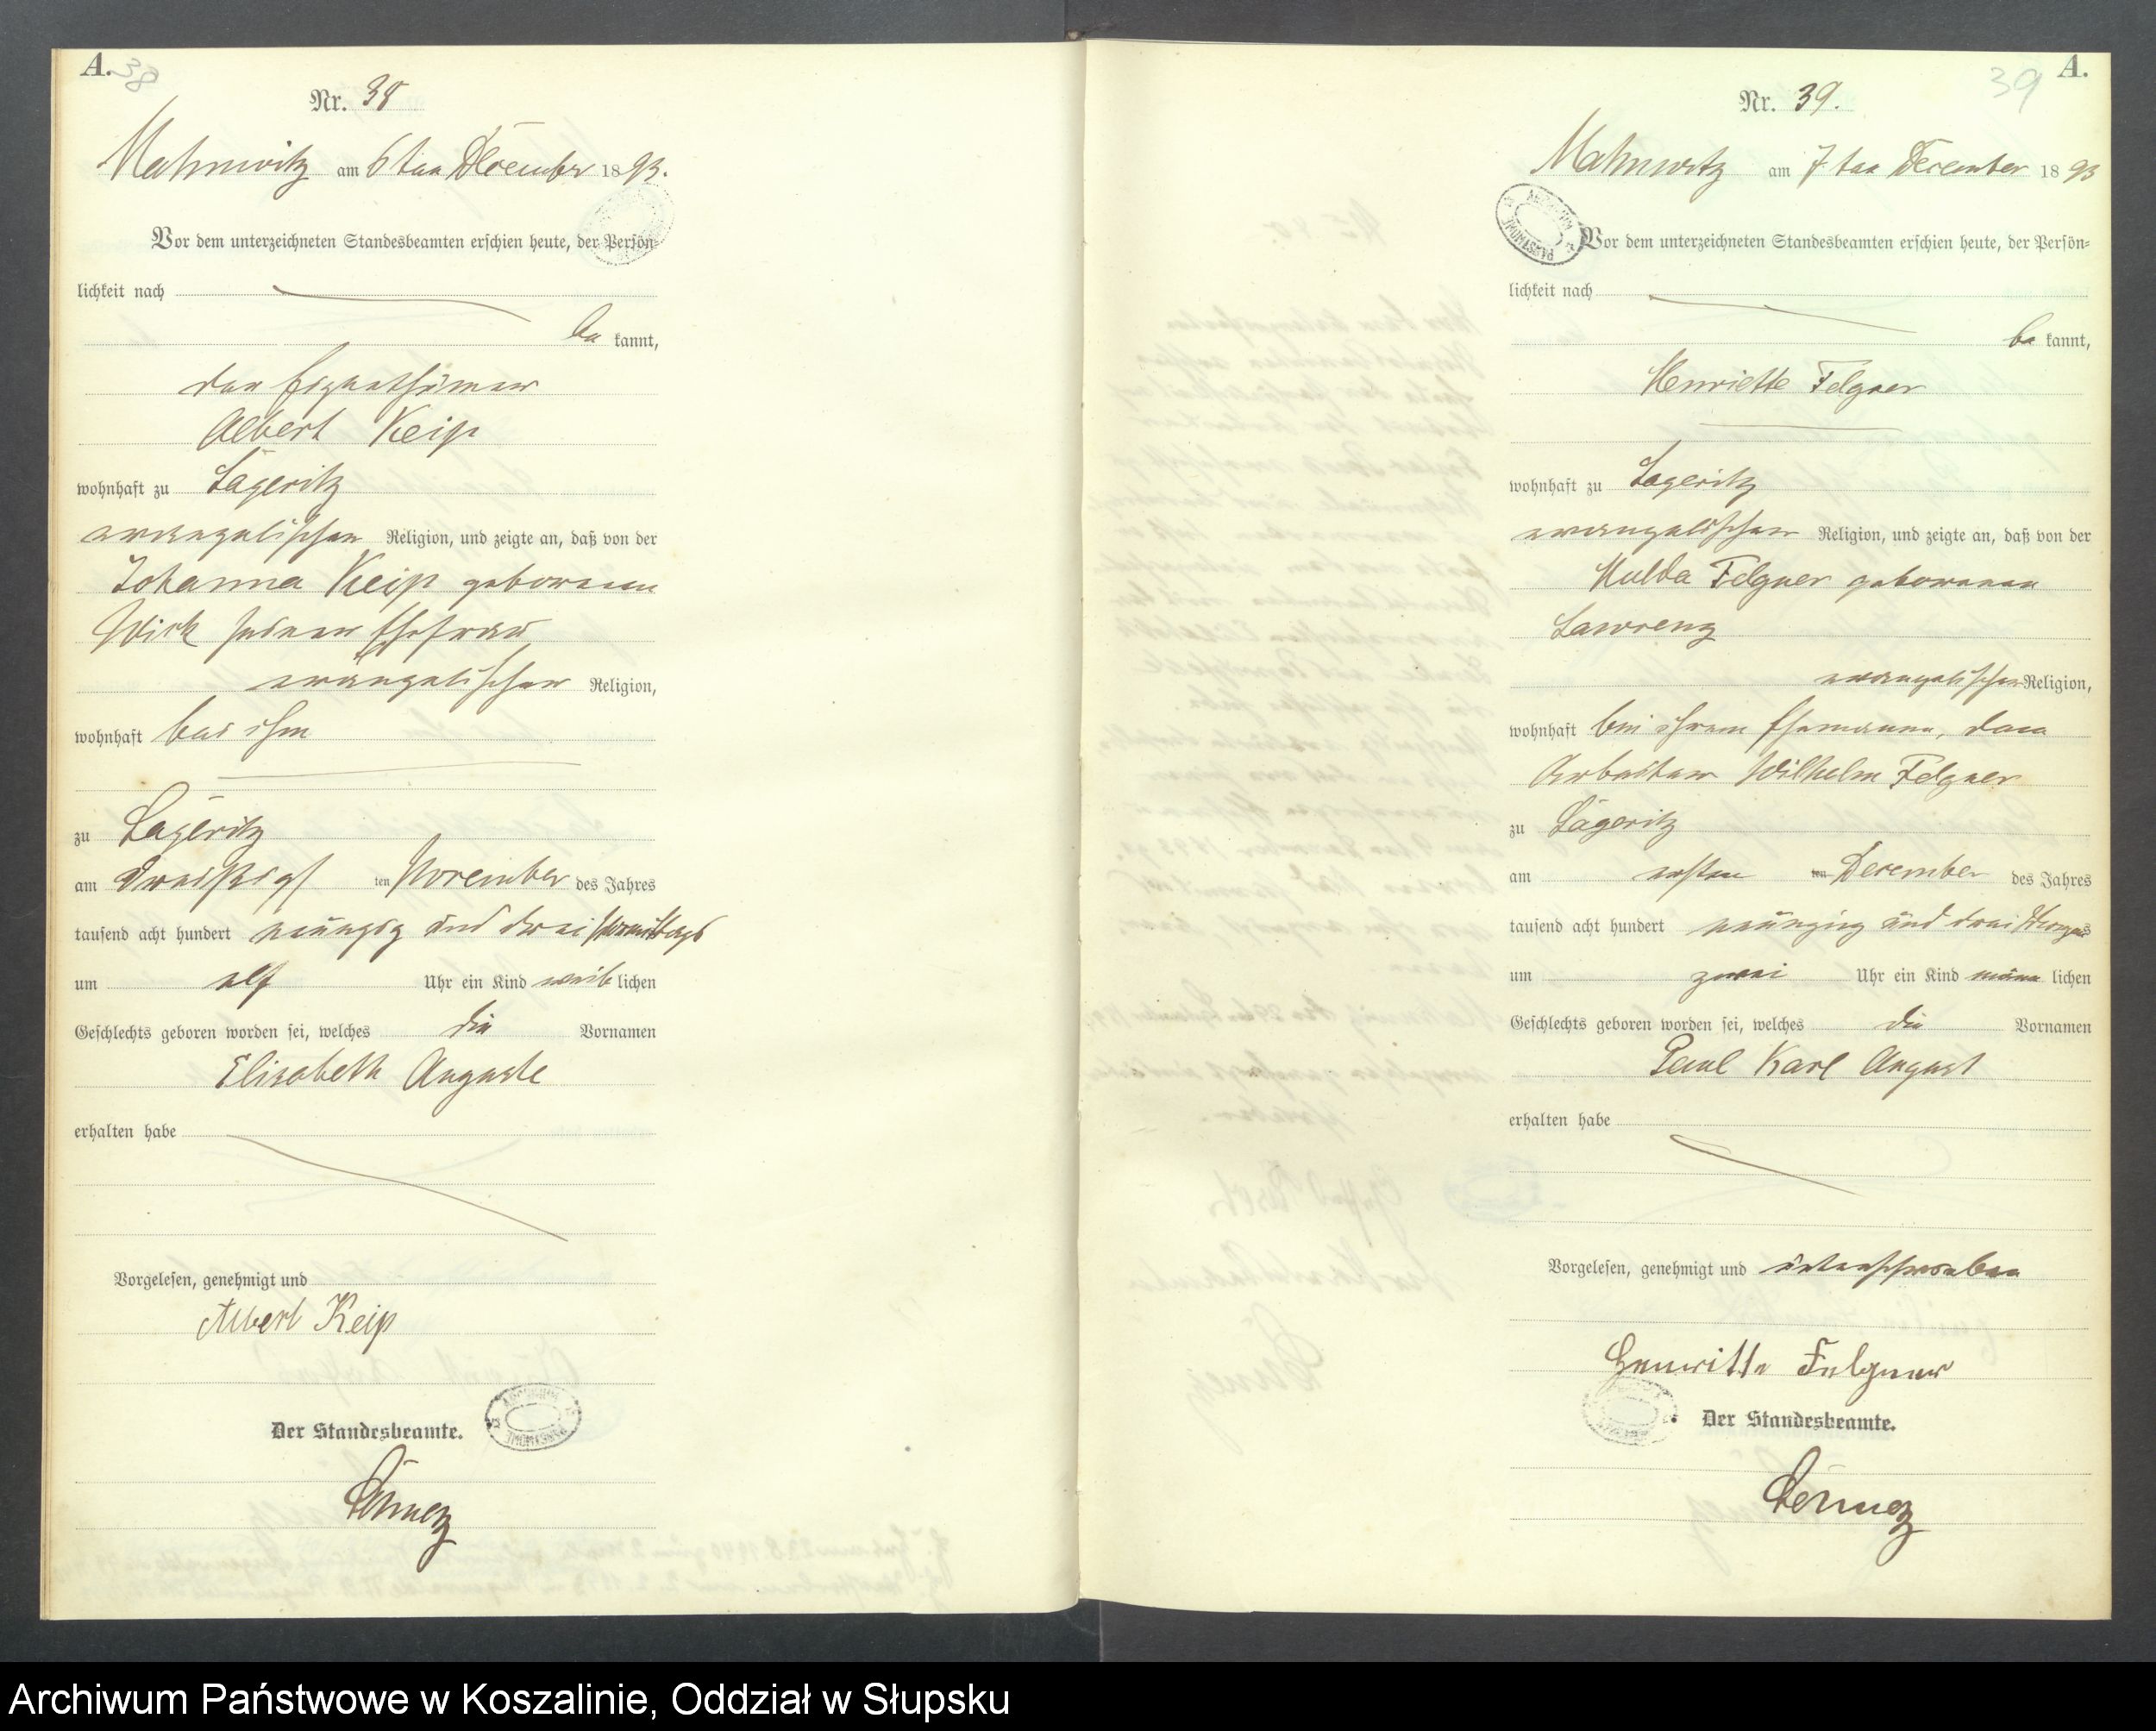 A. 38
Nr. 38
Mahnwitz am 6 ten December 1893.
Vor dem unterzeichneten Standesbeamten erschien heute, der Persön-
lichkeit nach
be kannt,
der Eigenthümer
Albert Keip
wohnhaft zu Lageritz
evangelischen Religion, und zeigte an, daß von der
Johanna Keip geborenen
Wick seiner Ehefrau
evangelischer Religion,
wohnhaft bei ihm
zu Lageritz
am dreißigst ten November des Jahres
tausend acht hundert neunzig und drei Vormittags
um elf Uhr ein Kind weib lichen
Geschlechts geboren worden sei, welches die Vornamen
Elisabeth Auguste
erhalten habe
Vorgelesen, genehmigt und
Albert Keip
Der Standesbeamte.
39 A.
Nr. 39.
Mahnwitz am 7 ten December 1893
Vor dem unterzeichneten Standesbeamten erschien heute, der Persön-
lichkeit nach
be kannt,
Henriette Felgner
wohnhaft zu Lageritz
evangelischen Religion, und zeigte an, daß von der
Hulda Felgner geborenen
Lawrenz
evangelischen Religion,
wohnhaft bei ihrem Ehemanne, dem
Arbeiter Wilhelm Felgner
zu Lageritz
am ersten ten December des Jahres
tausend acht hundert neunzig und drei Morgens
um zwei Uhr ein Kind männ lichen
Geschlechts geboren worden sei, welches die Vornamen
Paul Karl August
erhalten habe
Vorgelesen, genehmigt und unterschrieben
Henriette Felgner
Der Standesbeamte.
Archiwum Państwowe w Koszalinie, Oddział w Słupsku